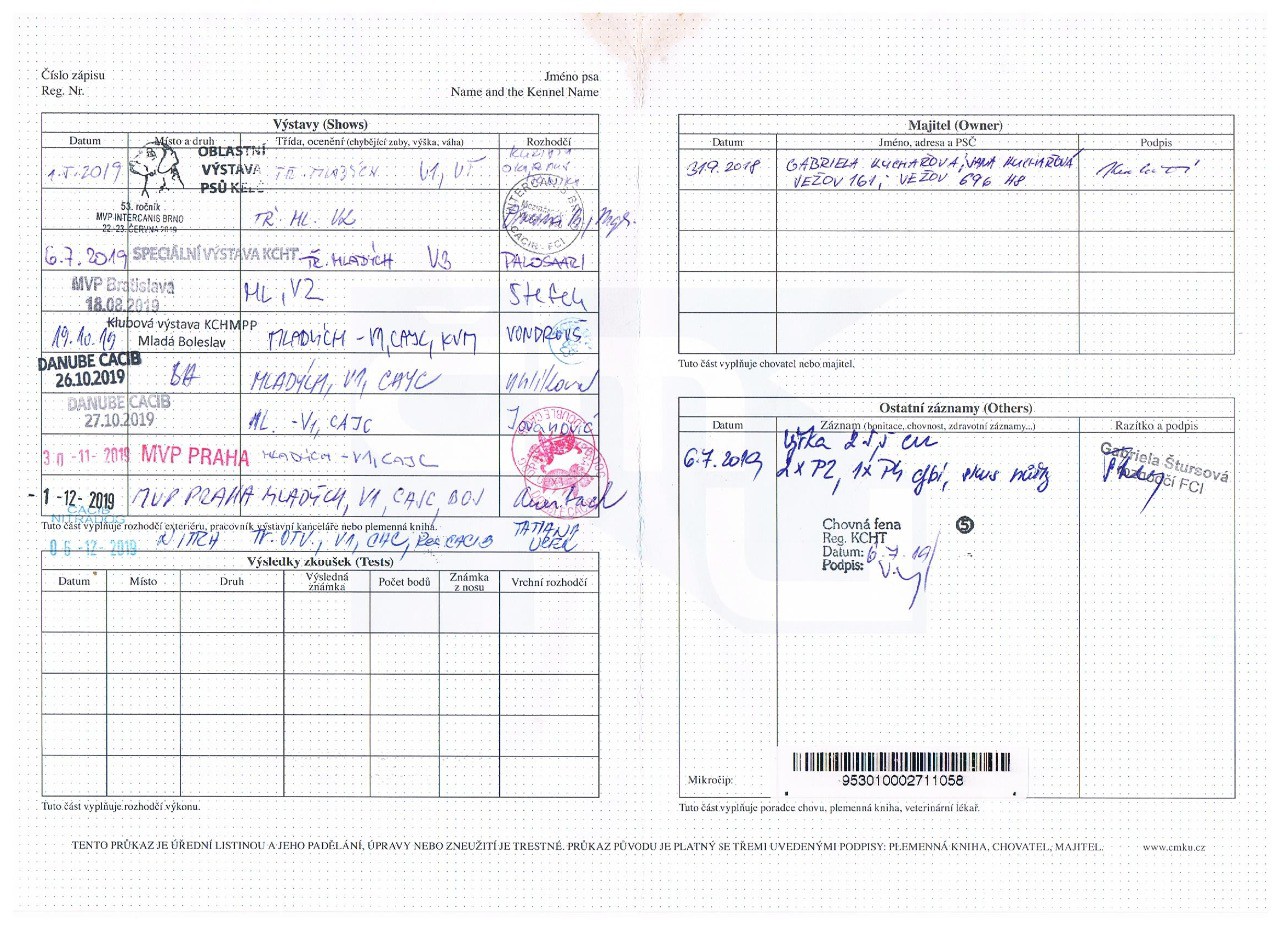 Číslo zápisu
Reg. Nr.
Jméno psa
Name and the Kennel Name
Výstavy (Shows)
Datum Místo a druh Třída, ocenění (chybějící zuby, výška, váha) Rozhodčí
1.5.2019 OBLASTNÍ VÝSTAVA PSŮ TŘ. MLADÝCH V1, VT
53. ročník
MVP INTERCANIS BRNO
22.-23. ČERVNA 2019
TŘ. ML. V2
INTERCANIS CACIB - FCI
6.7.2019 SPECIÁLNÍ VÝSTAVA KCHT TŘ. MLADÝCH V3 PALOSAARI
MVP Bratislava
18.08.2019
ML, V2
19.10.19 Klubová výstava KCHMPP
Mladá Boleslav
MLADÝCH - V1, CAJC, KVM VONDROUŠ
DANUBE CACIB
26.10.2019
BA MLADÝCH, V1, CAJC
DANUBE CACIB
27.10.2019
ML. - V1, CAJC Jovanović
30 -11- 2019 MVP PRAHA MLADÝCH - V1, CAJC
- 1 -12- 2019 MVP PRAHA MLADÝCH, V1, CAJC, BOJ
CACIB
NITRADOG
Tuto část vyplňuje rozhodčí exteriéru, pracovník výstavní kanceláře nebo plemenná kniha.
06 -12- 2019 NITRA TŘ. OTV., V1, CAC, Res CACIB TATIANA
Výsledky zkoušek (Tests)
Datum Místo Druh Výsledná známka Počet bodů Známka z nosu Vrchní rozhodčí
Tuto část vyplňuje rozhodčí výkonu.
Majitel (Owner)
Datum Jméno, adresa a PSČ Podpis
31.9.2018 GABRIELA KUCHAŘOVÁ, JANA KUCHAŘOVÁ
VEŽOV 161, VEŽOV 696 48
Tuto část vyplňuje chovatel nebo majitel.
Ostatní záznamy (Others)
Datum Záznam (bonitace, chovnost, zdravotní záznamy...) Razítko a podpis
výška 25,5 cm
6.7.2019 2x P2, 1x P4 chybí, skus nůžky
Gabriela Štursová
rozhodčí FCI
Chovná fena 5
Reg. KCHT
Datum: 6.7.19
Podpis:
Mikročip: 953010002711058
Tuto část vyplňuje poradce chovu, plemenná kniha, veterinární lékař.
TENTO PRŮKAZ JE ÚŘEDNÍ LISTINOU A JEHO PADĚLÁNÍ, ÚPRAVY NEBO ZNEUŽITÍ JE TRESTNÉ. PRŮKAZ PŮVODU JE PLATNÝ SE TŘEMI UVEDENÝMI PODPISY: PLEMENNÁ KNIHA, CHOVATEL, MAJITEL. www.cmku.cz